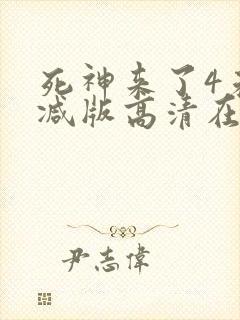 死神来了4
减版高清在
尹志偉